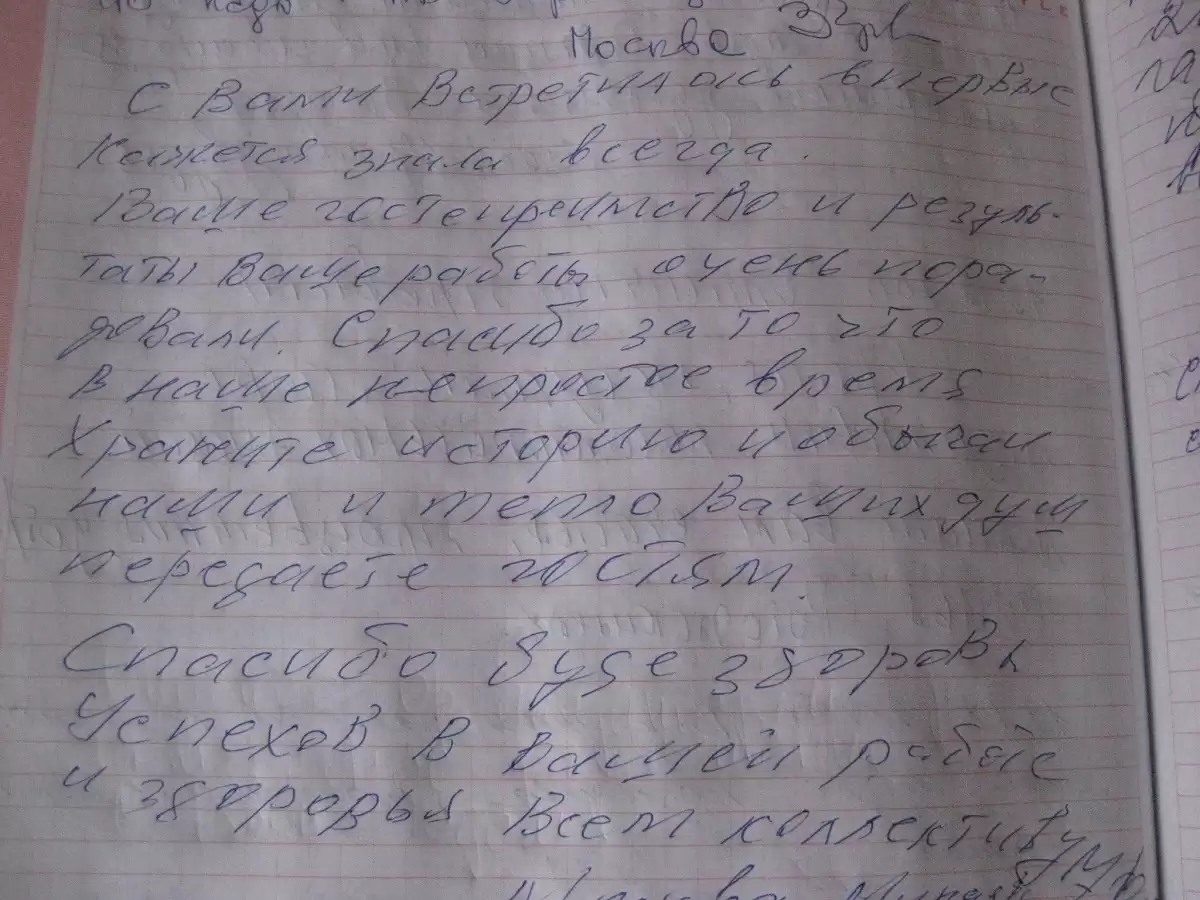 Москва
С Вами Встретилась впервые
Кажется знала всегда.
Ваше гостепреимство и резуль-
таты Ваше работы очень пора-
довали. Спасибо за то что
в наше непростое время
Храните историю и обычаи
наши и тепло Ваших душ
передаете гостям.
Спасибо Буде здоровы
Успехов в вашей работе
и здоровья Всем коллективу